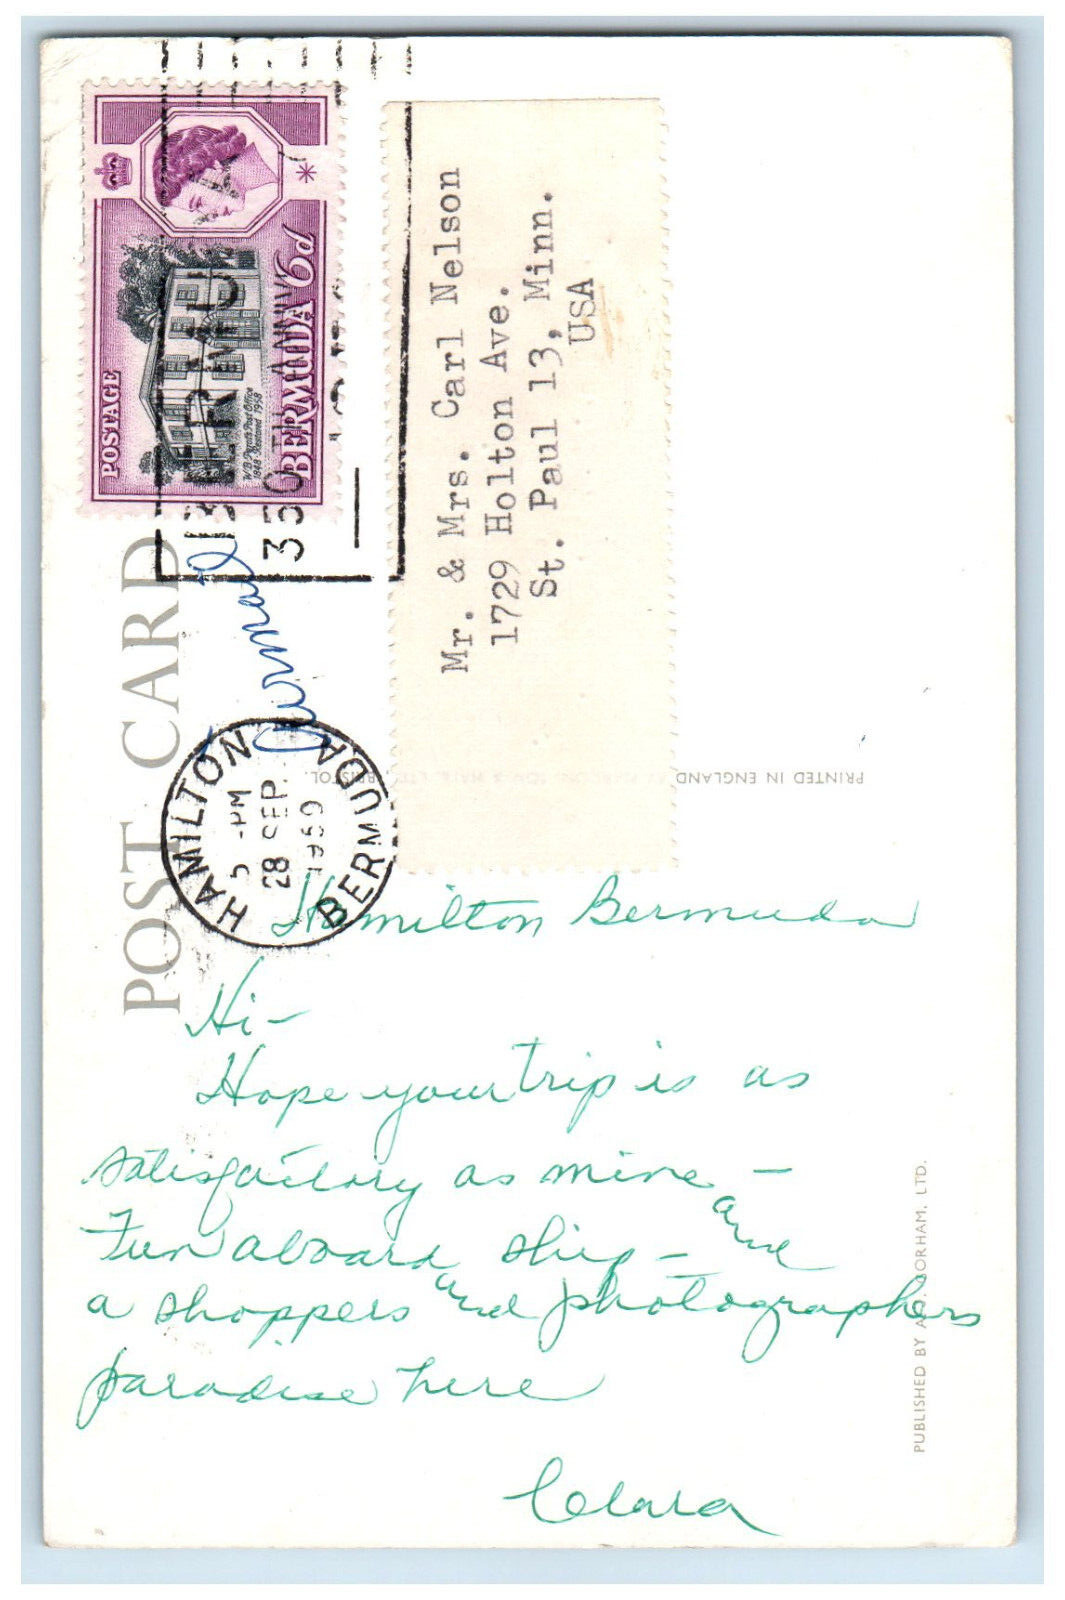 POST CARD
POSTAGE
W.B. Perot's Post Office
1848 Restored 1958
BERMUDA 6d
BERMUDA
350
Airmail
HAMILTON
5 PM
28 SEP
1959
BERMUDA
Mr. & Mrs. Carl Nelson
1729 Holton Ave.
St. Paul 13, Minn.
USA
PRINTED IN ENGLAND BRISTOL.
Hamilton Bermuda
Hi-
Hope your trip is as
satisfactory as mine -
Fun aboard ship - and
a shoppers and photographers
paradise here
Clara
PUBLISHED BY A. GORHAM, LTD.